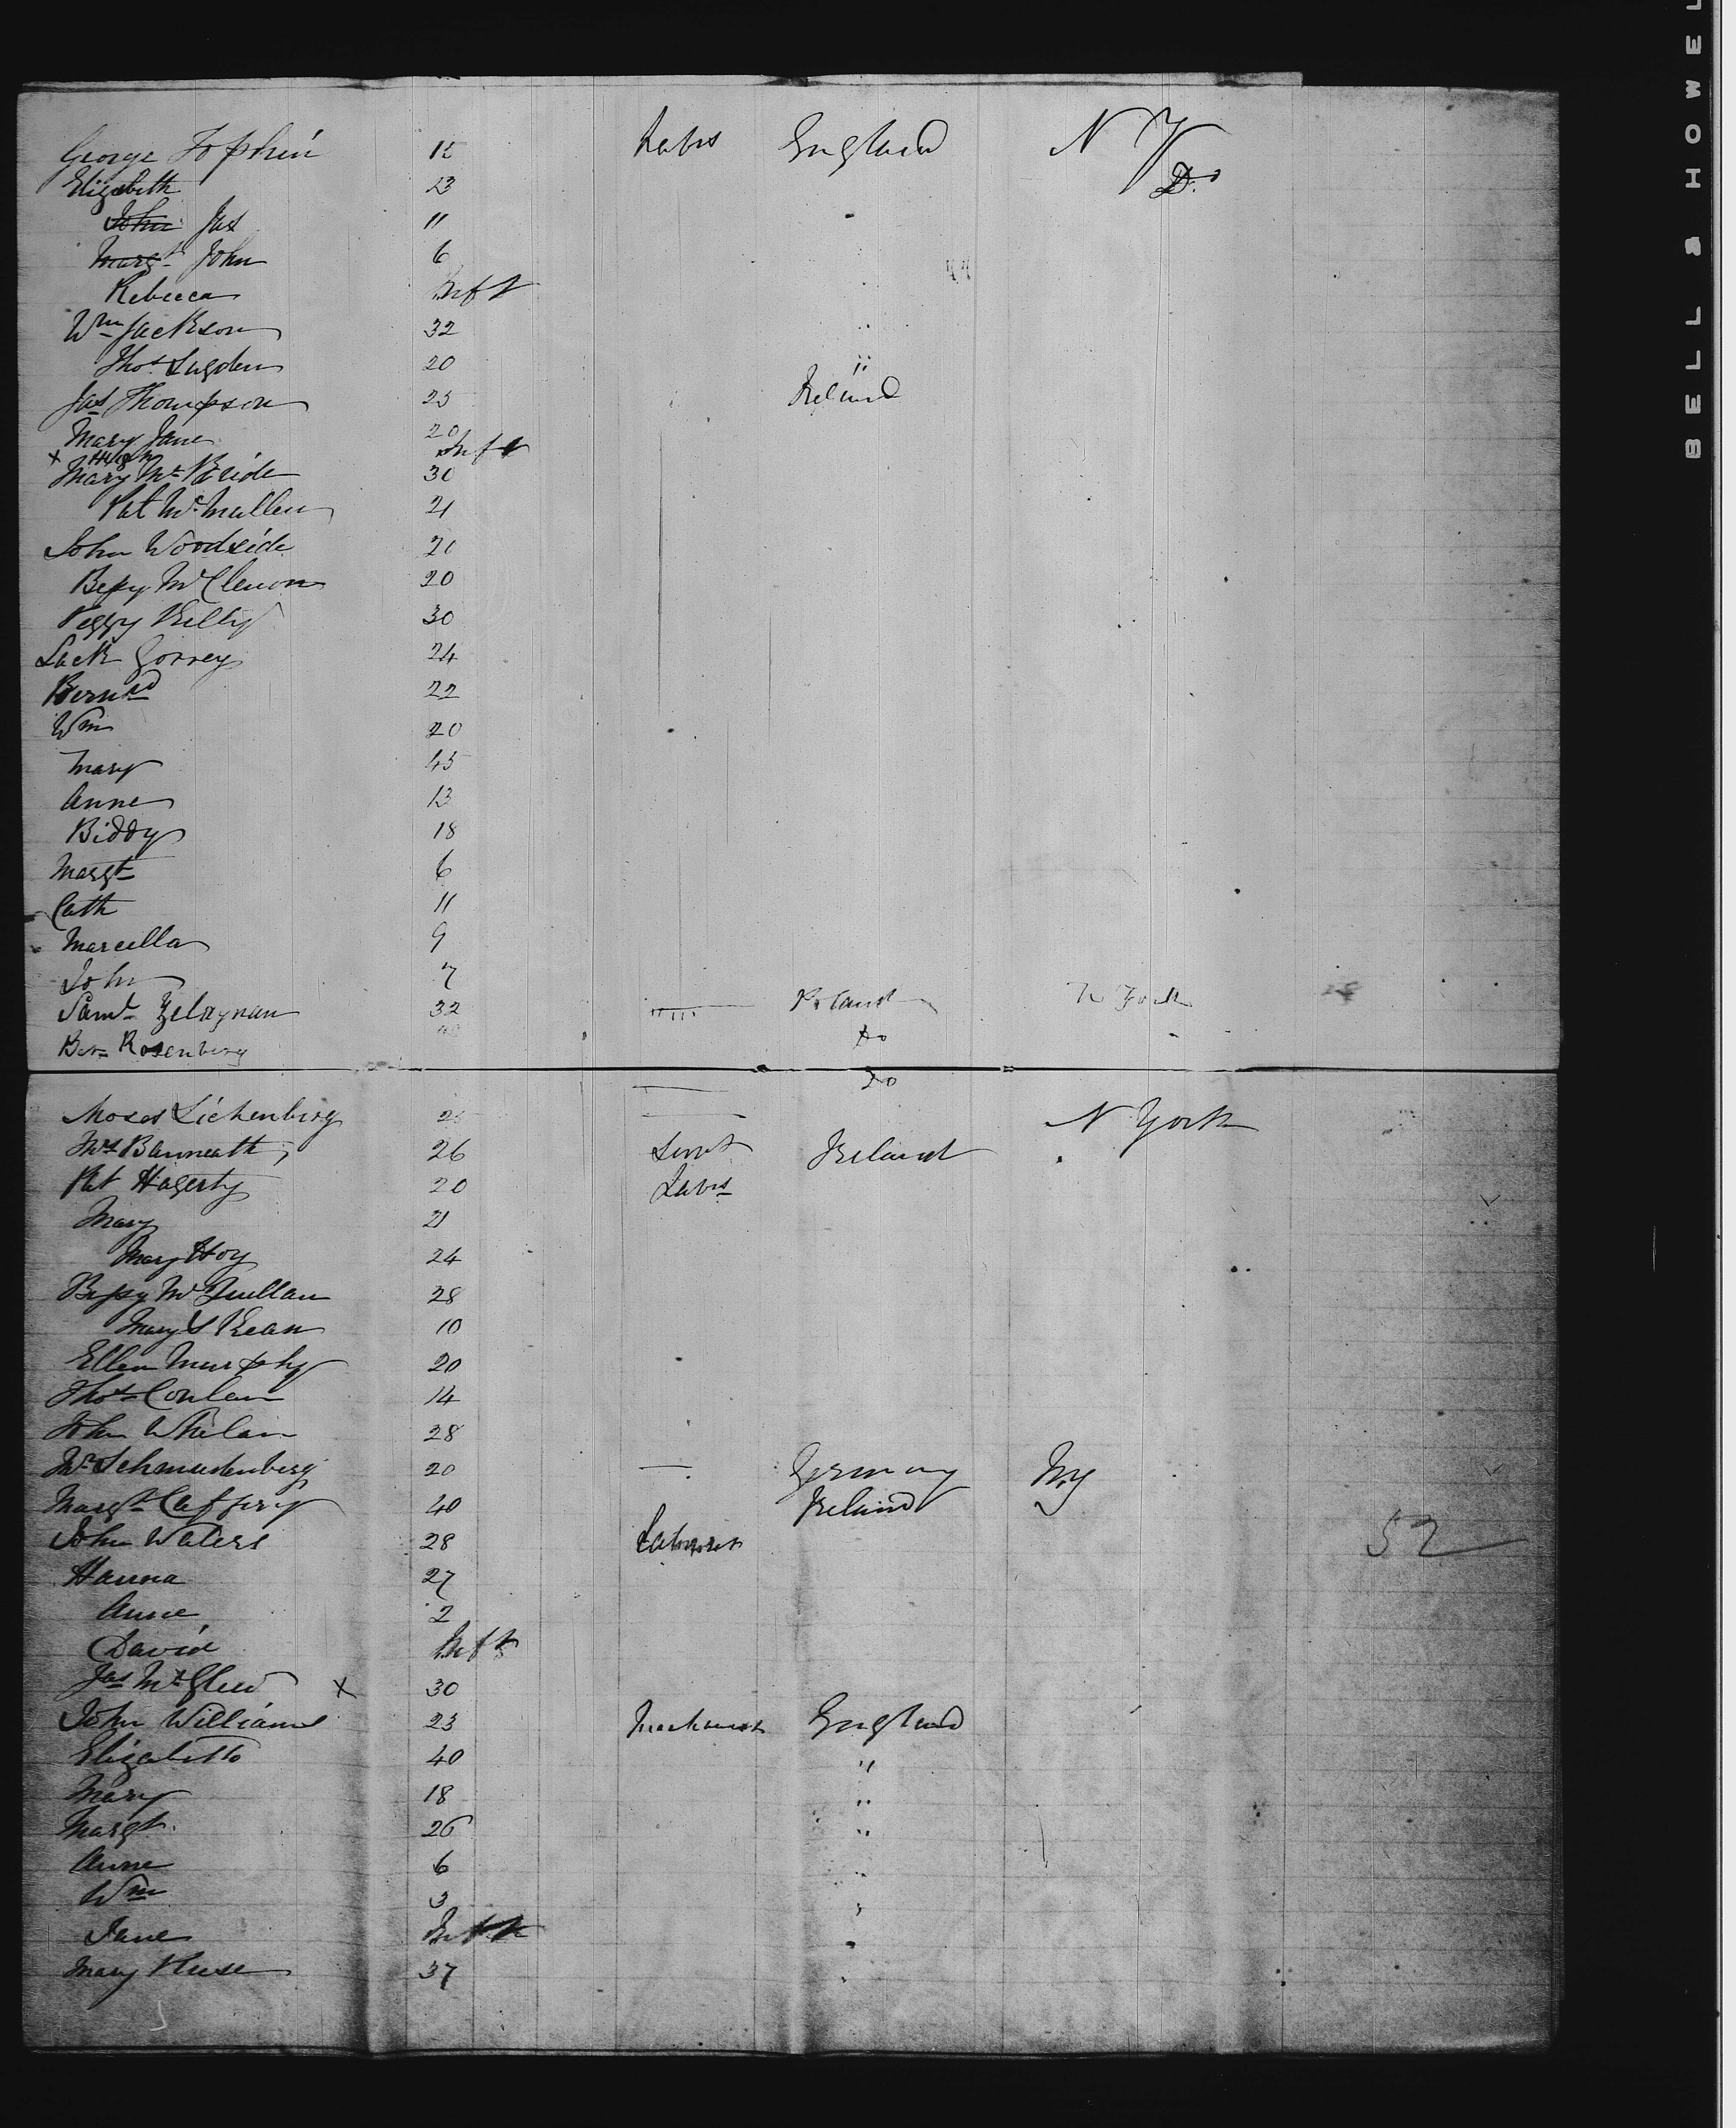 George Tophin 15 Labrs England N Y
Elizabeth 13 Do
John Jas 11
Margt John 6
Rebecca Inft
Wm Jackson 32 "
Thos Sugden 20 "
Jas Thompson 25 Ireland
Mary Jane 20
x Hugh Inft
Mary McBride 30
Pat McMullen 21
John Woodside 20
Bessy McClenon 20
Peggy Kelly 30
Lack Gorrey 24
Bernad 22
Wm 20
Mary 45
Anne 13
Biddy 18
Margt 6
Cath 11
Marcella 9
John 7
Saml 32 Poland N York
Ber Rosenberg Do
Do
Moses Lichenberg 25 N York
26 Servt Ireland
Pat Hagerty 20 Labrs
Mary 21
Mary Hoy 24
Bessy McQuillan 28
Mary Kean 10
Ellen Murphy 20
Thos Conlan 14
John Whelan 28
20 Germany N.Y
Margt Caffery 40 Ireland
John Waters 28 Labourer 52
Hanna 27
Anne 2
David Inft
Jas McGlew x 30
John Williams 23 Mechanic England
Elizabeth 40 "
Mary 18 "
Margt 26 "
Anne 6 "
Wm 3 "
Jane Inft "
Mary 37
BELL & HOWEL